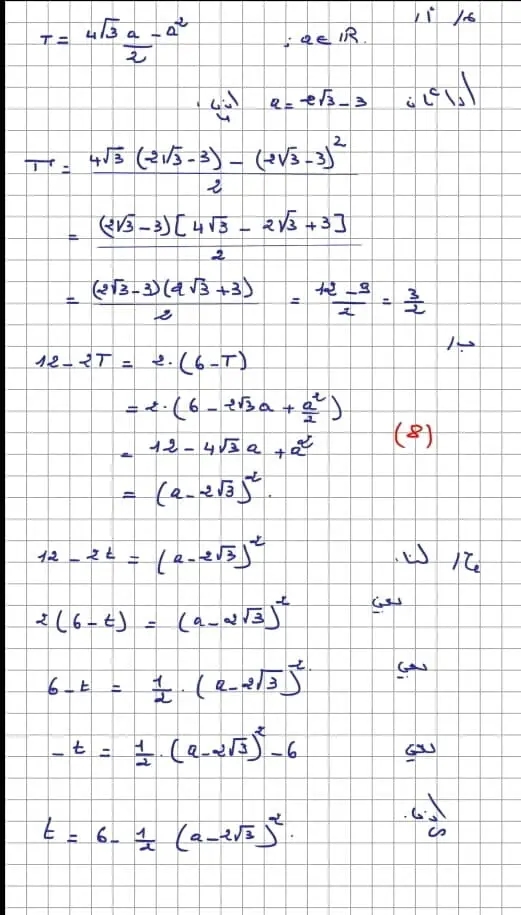 1/ أ/
T = (4√3 a - a²)/2 ; a ∈ ℝ.
إذا كان a = 2√3 - 3 إذن،
T = (4√3 (2√3 - 3) - (2√3 - 3)²)/2
= ((2√3 - 3)[4√3 - 2√3 + 3])/2
= ((2√3 - 3)(2√3 + 3))/2 = (12 - 9)/2 = 3/2
ب/
12 - 2T = 2·(6 - T)
= 2·(6 - 2√3a + a²/2)
= 12 - 4√3 a + a²
(8)
= (a - 2√3)².
ج/ لنا. 12 - 2t = (a - 2√3)²
يعني 2(6 - t) = (a - 2√3)²
يعني 6 - t = 1/2 · (a - 2√3)².
يعني - t = 1/2 · (a - 2√3)² - 6
إذن. t = 6 - 1/2 (a - 2√3)².